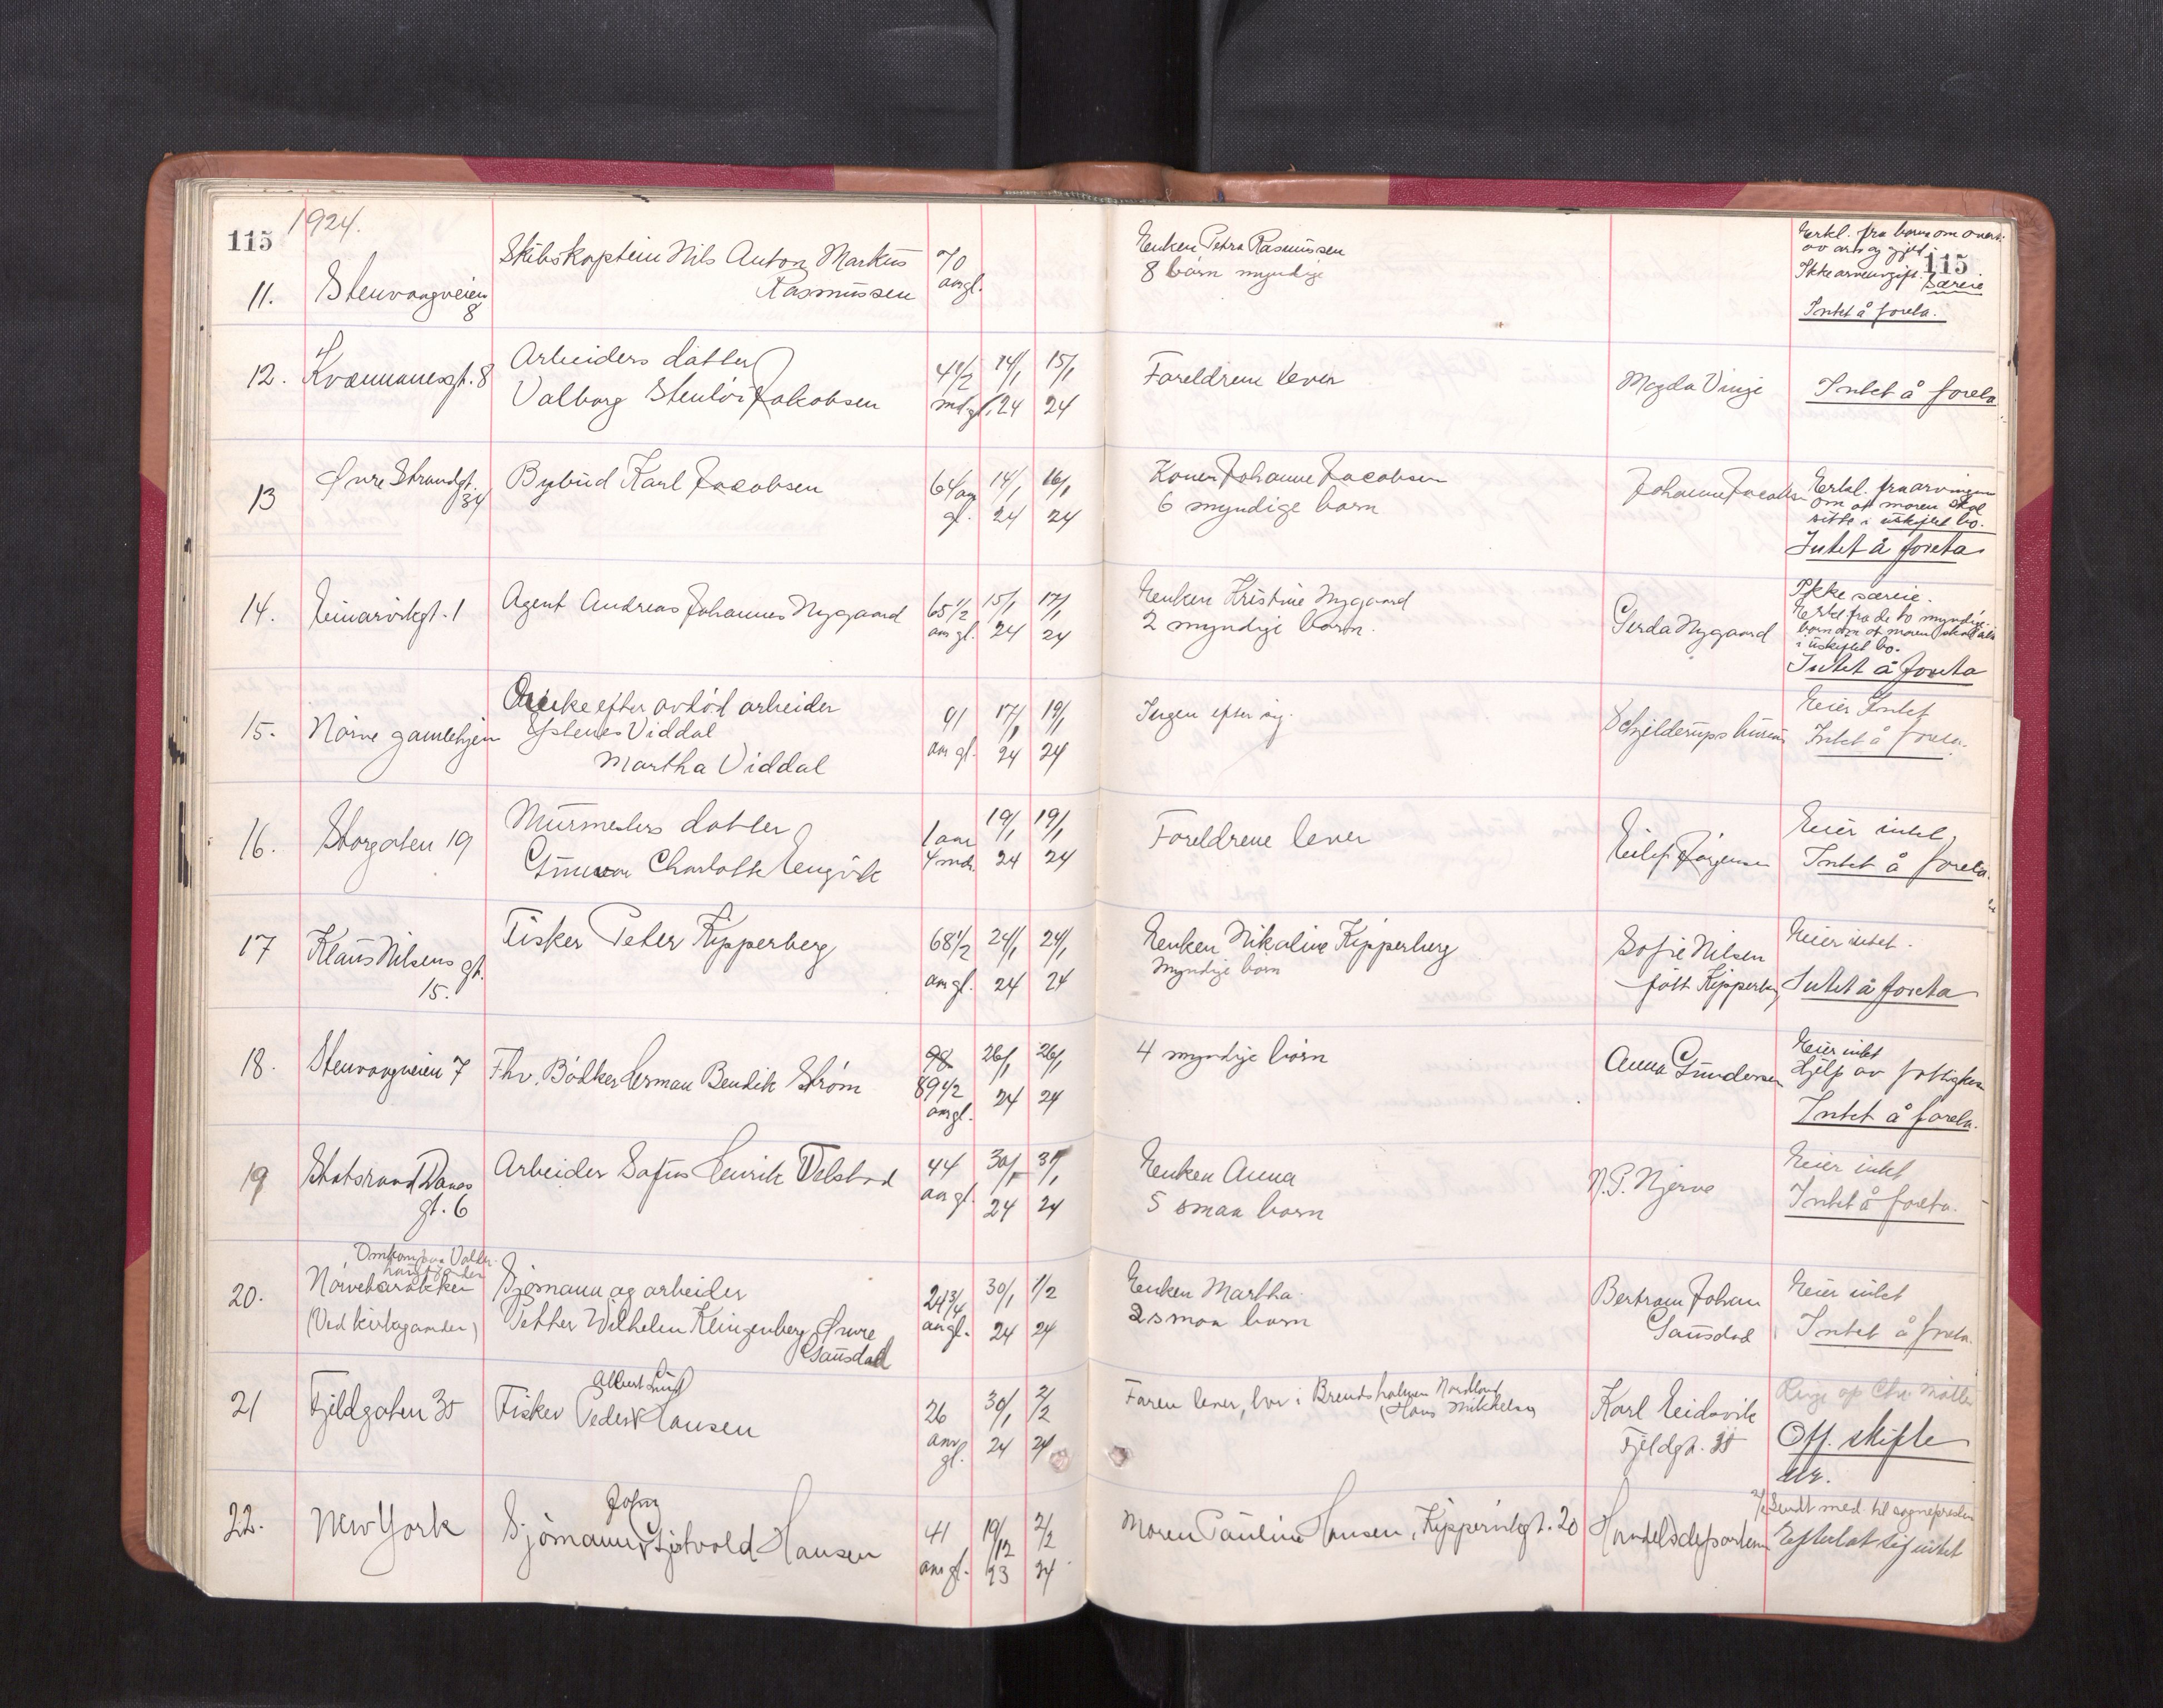 115
1924.
11.
Stenvaagveien
8
Skibskaptein Nils Anton Markus
Rasmussen
70
aar gl.
Enken Petra Rasmussen
8 børn myndige
Erkl. fra barna om
av arv og gjeld.
115
Ikke arveavgift. Særeie
Intet å foreta.
12.
gt. 8
Arbeiders datter
Valborg Jakobsen
4 1/2
md. gl.
14/1
24
15/1
24
Foreldrene lever
Magda Vinje
Intet å foreta
13
Øvre Strandgt.
34
Bybud Karl Jacobsen
64 aar
gl.
14/1
24
16/1
24
Konen Johanne Jacobsen
6 myndige barn
Johanne Jacobsen
Erkl. fra arvingene
om at moren skal
sitte i uskiftet bo.
Intet å foreta
14.
Einarvikgt. 1
Agent Andreas Johannes Nygaard
65 1/2
aar gl.
15/1
24
17/1
24
Enken Kristine Nygaard
2 myndige barn.
Gerda Nygaard
Ikke særeie.
Erkl. fra de to myndige
barn om at moren skal
i uskiftet bo.
Intet å foreta
15.
Nørve gamlehjem
Enke efter avdød arbeider
Viddal
Martha Viddal
91
aar gl.
17/1
24
19/1
24
Ingen efter sig.
Schjelderups
Eier Intet
Intet å foreta.
16.
Storgaten 19
Murmesters datter
Gunvor Charlotte Engvik
1 aar
4 mdr.
19/1
24
19/1
24
Foreldrene lever
Eilif Jørgensen
Eier intet
Intet å foreta.
17
Klaus Nilsens gt.
15.
Fisker Peter Kipperberg
68 1/2
aar gl.
24/1
24
24/1
24
Enken Nikoline Kipperberg
Myndige børn
Sofie Nilsen
født Kipperberg
Eier intet.
Intet å foreta
18.
Stenvaagveien 7
Fhv. Bødker Herman Bendik Strøm
98
89 1/2
aar gl.
26/1
24
26/1
24
4 myndige børn
Anna Gundersen
Eier intet
Hjelp av
Intet å foreta.
19
Statsraad Daaes
gt. 6
Arbeider Sofus Henrik Velstad
44
aar gl.
30/1
24
31/1
24
Enken Anna
5 smaa barn
N. P. Njerve
Eier intet
Intet å foreta.
20.
Omkom paa
Nørvebarakken
(Ved kirkegaarden)
Sjømann og arbeider
Petter Wilhelm Klingenberg Øvre
Gausdal
24 3/4
aar gl.
30/1
24
1/2
24
Enken Martha.
2 smaa barn
Bertram Johan
Gausdal
Eier intet
Intet å foreta.
21
Fjeldgaten 35
Albert
Fisker Peder Hansen
26
aar
gl.
30/1
24
2/2
24
Faren lever, bor i Nordland
(Hans Mikkelsen)
Karl Eidsvik
Fjeldgt. 35
Off. skifte
22.
New York
John
Sjømann Hansen
41
aar gl.
19/12
23
2/2
24
Moren Pauline Hansen, Kipperviksgt. 20
Handelsdepartem.
Sendt med. til sogneprest
Efterlot sig intet